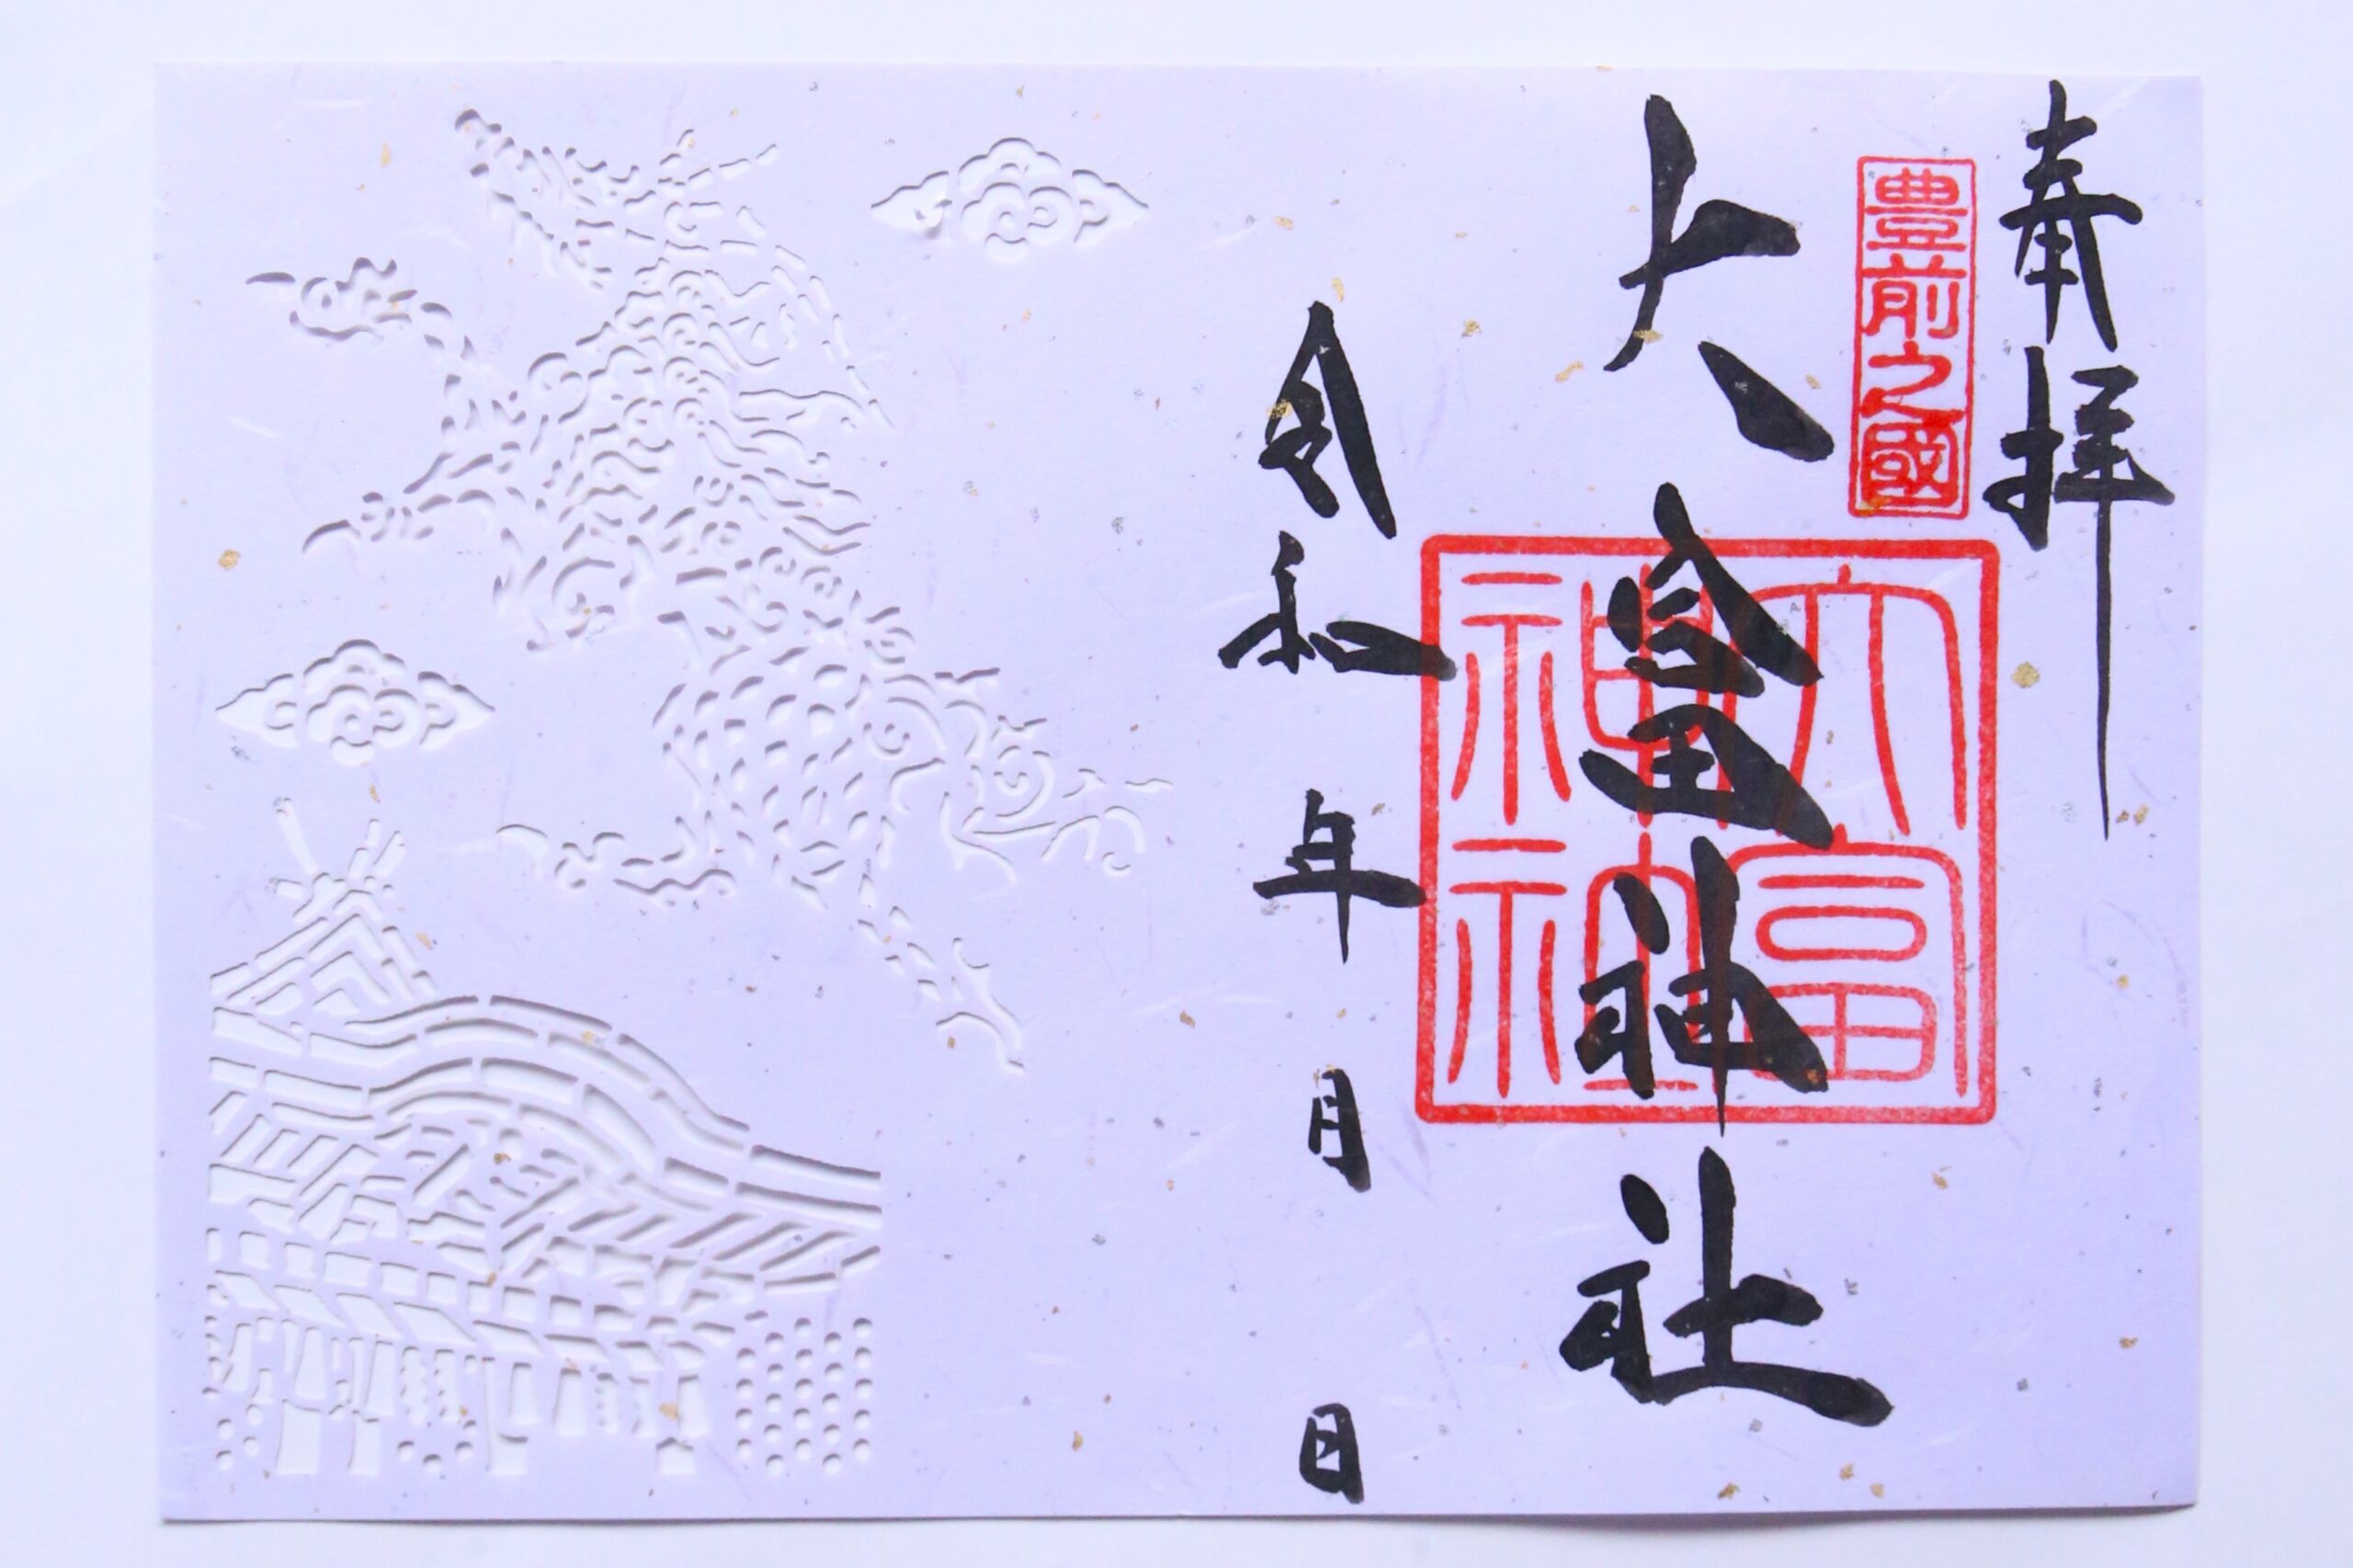 奉拝
豊前之國
大富神社
大富神社
令和 年 月 日